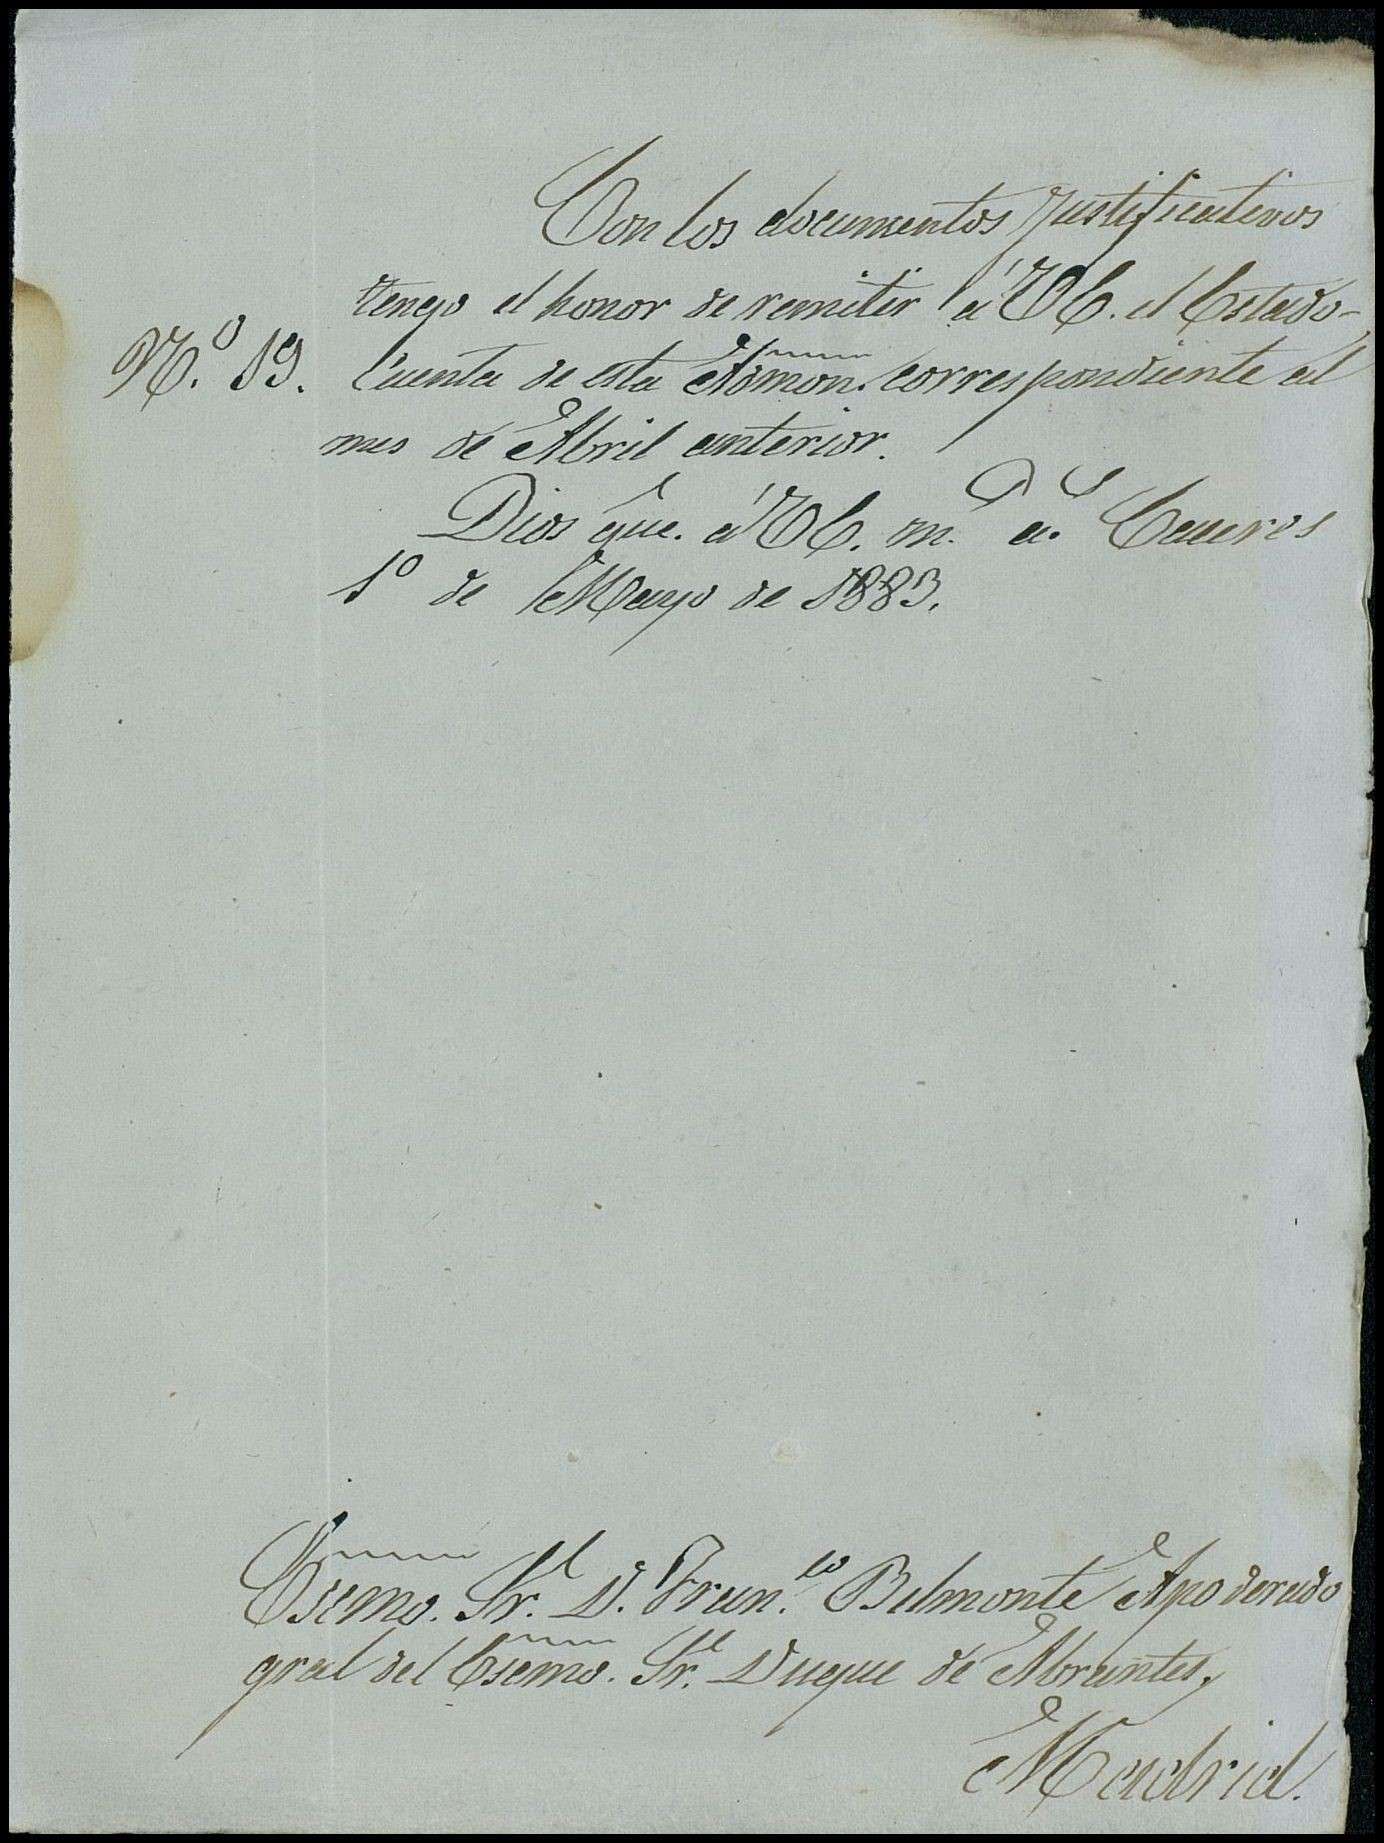 Con los documentos justificativos
tengo el honor de remitir á VE. el Estado-
N.º 19. Cuenta de esta Admon. correspondiente al
mes de Abril anterior.
Dios gue. á VE. m.s a.s Caceres
1º de Mayo de 1883.
Escmo. Sr. D. Fran.co Belmonte Apoderado
gral del Escmo. Sr. Duque de Abrantes,
Madrid.